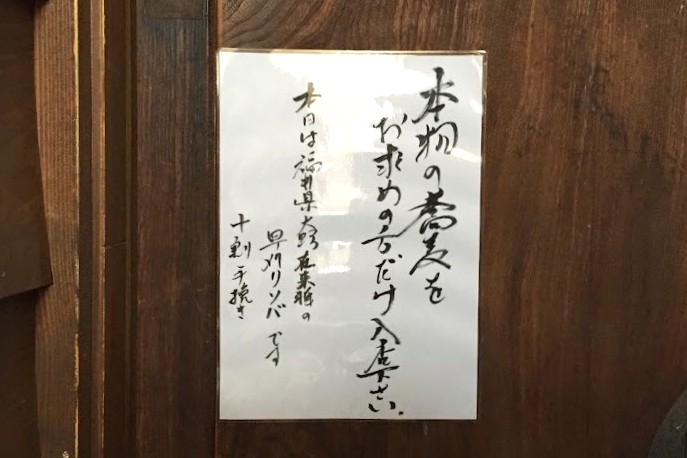 本物の蕎麦を
お求めの方だけ入店下さい.
本日は福井県大野在来種の
早刈りソバです
十割手挽き